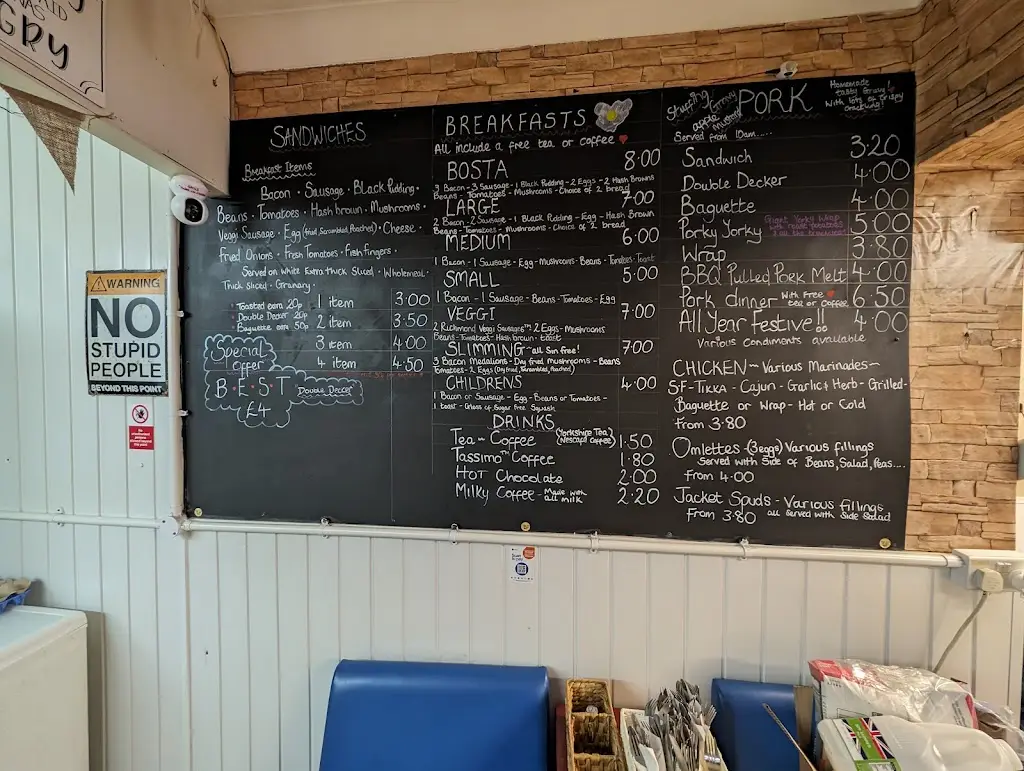 GRY
WARNING
NO
STUPID
PEOPLE
BEYOND THIS POINT
SANDWICHES
Breakfast Items
Bacon · Sausage · Black Pudding ·
Beans · Tomatoes · Hash brown · Mushrooms ·
Veggi Sausage · Egg (Fried, Scrambled, Poached) · Cheese ·
Fried Onions · Fresh Tomatoes · Fish fingers ·
Served on white Extra thick Sliced · Wholemeal ·
Thick sliced · Granary ·
· Toasted extra 20p
· Double Decker 20p
Baguette extra 50p
1 item 3·00
2 item 3·50
3 item 4·00
4 item 4·50
Special
Offer
B·E·S·T Double Decker
£4
BREAKFASTS
All include a free tea or coffee
BOSTA 8·00
3 Bacon - 3 Sausage - 1 Black Pudding - 2 Eggs - 2 Hash Browns
Beans - Tomatoes - Mushrooms - Choice of 2 bread
LARGE 7·00
2 Bacon - 2 Sausage - 1 Black Pudding - Egg - Hash Brown
Beans - Tomatoes - Mushrooms - Choice of 2 bread
MEDIUM 6·00
1 Bacon - 1 Sausage - Egg - Mushrooms - Beans - Tomatoes - Toast
SMALL 5·00
1 Bacon - 1 Sausage - Beans - Tomatoes - Egg
VEGGI 7·00
2 Richmond Veggi Sausages™ 2 Eggs - Mushrooms
Beans - Tomatoes - Hash brown - toast
SLIMMING - all Sin free! 7·00
3 Bacon Medalions - Dry fried mushrooms - Beans
Tomatoes - 2 Eggs (Dry fried, Scrambled, Poached)
CHILDRENS 4·00
1 Bacon or Sausage - Egg - Beans or Tomatoes -
1 toast - Glass of Sugar free Squash
DRINKS
Tea ~ Coffee (Yorkshire Tea) (Nescafe Coffee) 1·50
Tassimo™ Coffee 1·80
Hot Chocolate 2·00
Milky Coffee - Made with all milk 2·20
Stuffing
apple
Gravy
PORK
Homemade
tasty Gravy!
With lots of Crispy
Crackling!
Served from 10am.....
Sandwich 3·20
Double Decker 4·00
Baguette 4·00
Porky Yorky 5·00
Giant Yorky Wrap
with roast potatoes
& all the trimmings!
Wrap 3·80
BBQ Pulled Pork Melt 4·00
Pork dinner With Free tea or Coffee 6·50
All Year Festive!! 4·00
Various condiments available
CHICKEN ~ Various Marinades ~
S·F - Tikka - Cajun - Garlic & Herb - Grilled -
Baguette or Wrap - Hot or Cold
From 3·80
Omlettes - (3eggs) Various fillings
Served with Side of Beans, Salad, Peas....
From 4·00
Jacket Spuds - Various fillings
From 3·80 all served with Side Salad